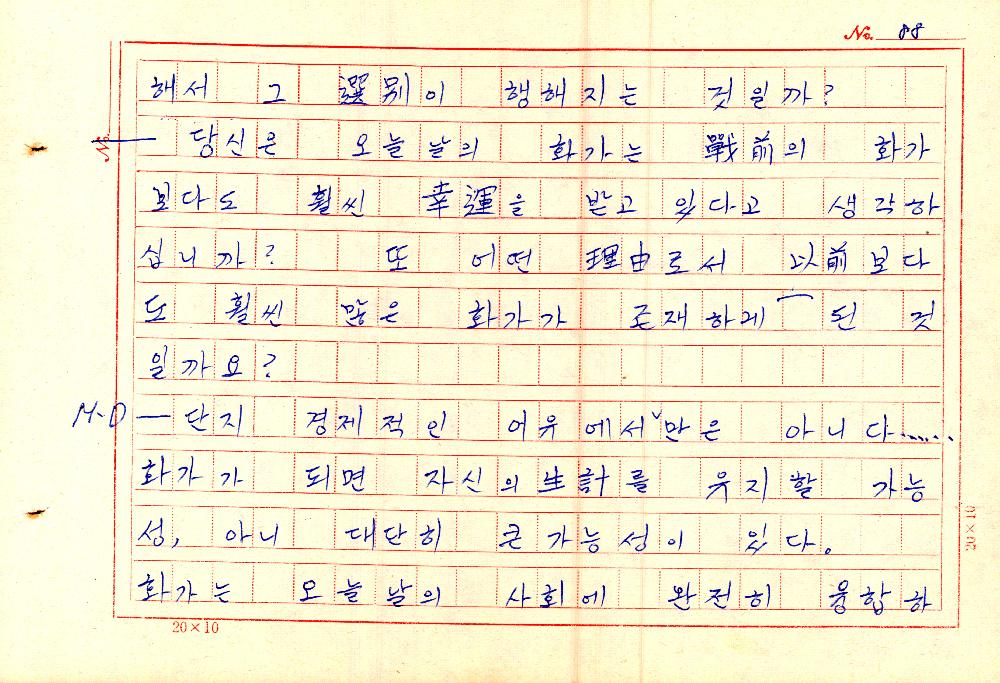 No. 88
해서 그 選別이 행해지는 것일까?
— 당신은 오늘날의 화가는 戰前의 화가
보다도 훨씬 幸運을 받고 있다고 생각하
십니까? 또 어떤 理由로서 以前보다
도 훨씬 많은 화가가 존재하게 된 것
일까요?
M-D — 단지 경제적인 여유에서만은 아니다......
화가가 되면 자신의 生計를 유지할 가능
성, 아니 대단히 큰 가능성이 있다.
화가는 오늘날의 사회에 완전히 융합하
20×10